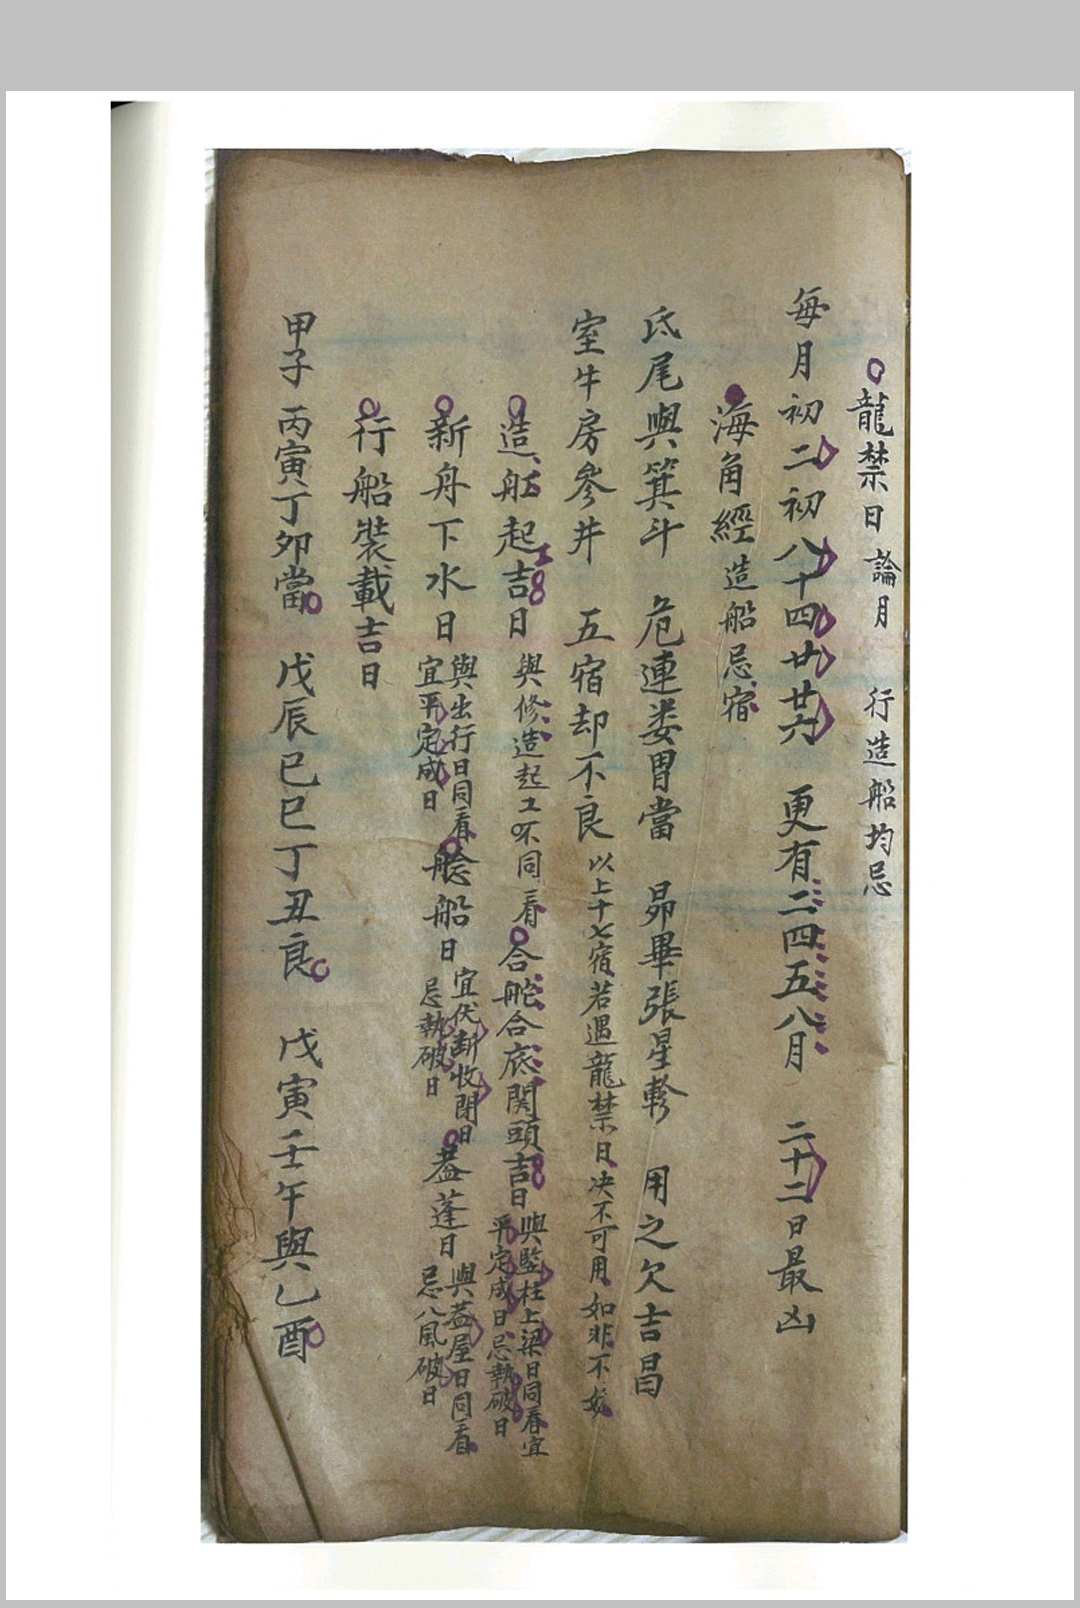 龍禁日 論月 行造船均忌
每月初二初八十四廿廿六 更有二四五八月 二十二日最凶
海角經 造船忌宿
氐尾與箕斗 危連娄胃當 昴畢張星軫 用之欠吉昌
室牛房參井 五宿却不良 以上十七宿若遇龍禁日决不可用 如非不妨
造船起工吉日 與修造起工不同看 合舵合底閞頭吉日 與監柱上梁日同看宜平定成日忌執破日
新舟下水日 與出行日同看宜平定成日 艌船日 宜伏断收閉日忌執破日 葢蓬日 與葢屋日同看忌八風破日
行船裝載吉日
甲子丙寅丁卯當 戊辰巳巳丁丑良 戊寅壬午與乙酉